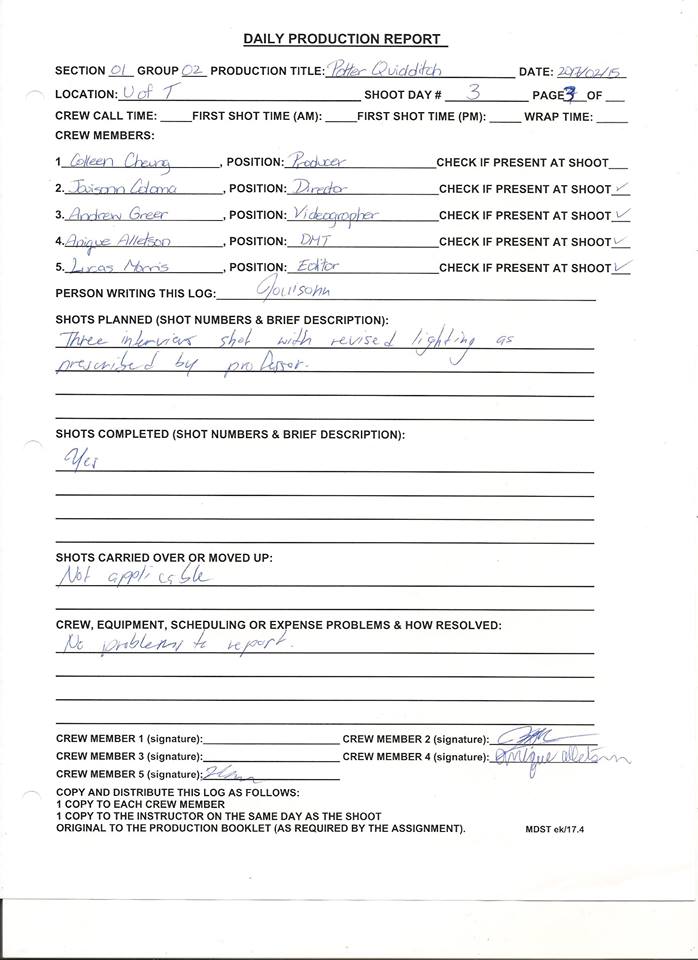 DAILY PRODUCTION REPORT
SECTION 01 GROUP 02 PRODUCTION TITLE: Potter Quidditch DATE: 2017/02/15
LOCATION: U of T SHOOT DAY # 3 PAGE 3 OF ___
CREW CALL TIME: _____ FIRST SHOT TIME (AM): _____ FIRST SHOT TIME (PM): _____ WRAP TIME: _____
CREW MEMBERS:
1 Colleen Cheung, POSITION: Producer CHECK IF PRESENT AT SHOOT___
2. Coloma, POSITION: Director CHECK IF PRESENT AT SHOOT ✓
3. Andrew Greer, POSITION: Videographer CHECK IF PRESENT AT SHOOT ✓
4. Anique Alletson, POSITION: DMT CHECK IF PRESENT AT SHOOT ✓
5. Lucas Morris, POSITION: Editor CHECK IF PRESENT AT SHOOT ✓
PERSON WRITING THIS LOG:
SHOTS PLANNED (SHOT NUMBERS & BRIEF DESCRIPTION):
Three interviews shot with revised lighting as
prescribed by professor.
SHOTS COMPLETED (SHOT NUMBERS & BRIEF DESCRIPTION):
Yes
SHOTS CARRIED OVER OR MOVED UP:
Not applicable
CREW, EQUIPMENT, SCHEDULING OR EXPENSE PROBLEMS & HOW RESOLVED:
No problems to report.
CREW MEMBER 1 (signature): CREW MEMBER 2 (signature):
CREW MEMBER 3 (signature): CREW MEMBER 4 (signature): Anique Alletson
CREW MEMBER 5 (signature):
COPY AND DISTRIBUTE THIS LOG AS FOLLOWS:
1 COPY TO EACH CREW MEMBER
1 COPY TO THE INSTRUCTOR ON THE SAME DAY AS THE SHOOT
ORIGINAL TO THE PRODUCTION BOOKLET (AS REQUIRED BY THE ASSIGNMENT). MDST ek/17.4